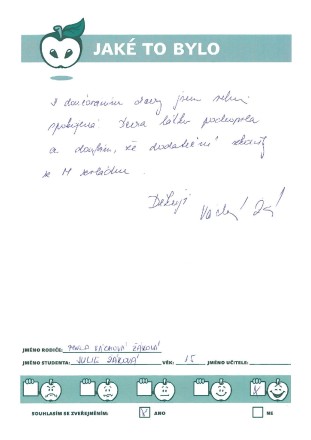 JAKÉ TO BYLO
S doučováním dcery jsem velmi
spokojená. Dcera látku pochopila
a doufám, že dodatečné zkoušky
z M zvládne.
Děkuji
JMÉNO RODIČE: PAVLA VÁCHOVÁ ŽÁKOVÁ
JMÉNO STUDENTA: JULIE ŽÁKOVÁ VĚK: 15 JMÉNO UČITELE:
SOUHLASÍM SE ZVEŘEJNĚNÍM: X ANO NE